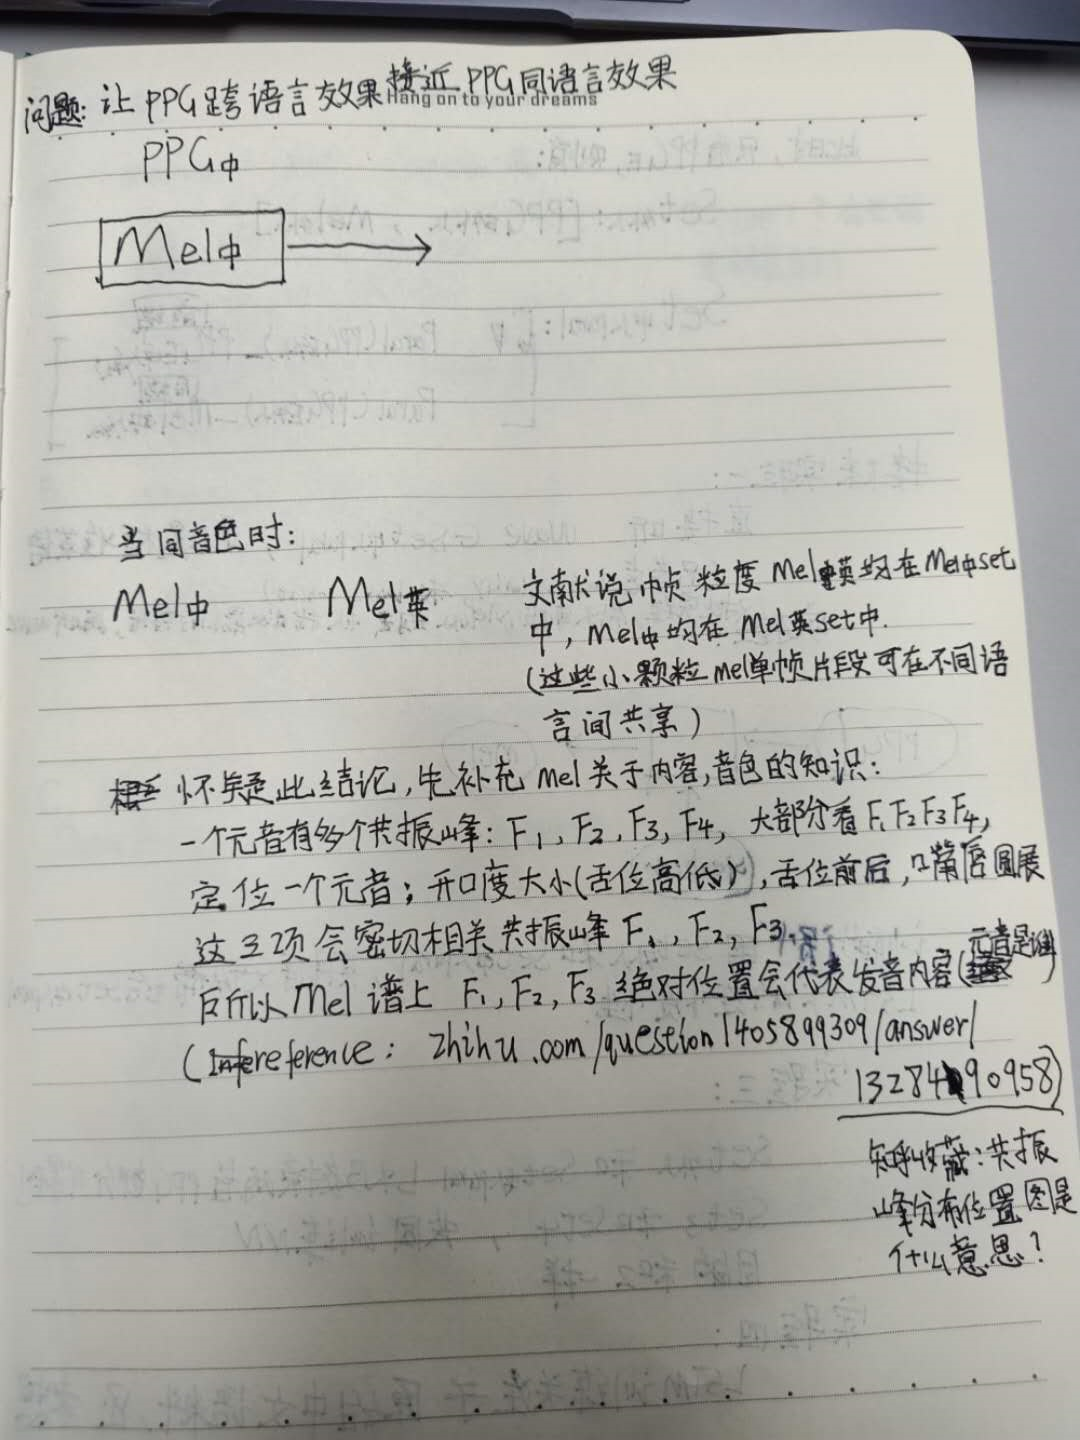 问题: 让PPG跨语言效果接近PPG同语言效果
Hang on to your dreams
PPG中
Mel中
当同音色时:
Mel中 Mel英
文献说帧粒度Mel英均在Mel中set
中, mel中均在Mel英set中.
(这些小颗粒mel单帧片段可在不同语
言间共享)
怀疑此结论,先补充mel关于内容,音色的知识:
一个元音有多个共振峰: F1, F2, F3, F4, 大部分看F1F2F3F4,
定位一个元音; 开口度大小(舌位高低), 舌位前后, 口嘴唇圆展
这三项会密切相关共振峰F1, F2, F3.
所以Mel谱上 F1, F2, F3 绝对位置会代表发音内容(元音是谁)
(reference: zhihu.com/question/405899309/answer/
1328490958)
知乎收藏:共振
峰分布位置图是
什么意思?